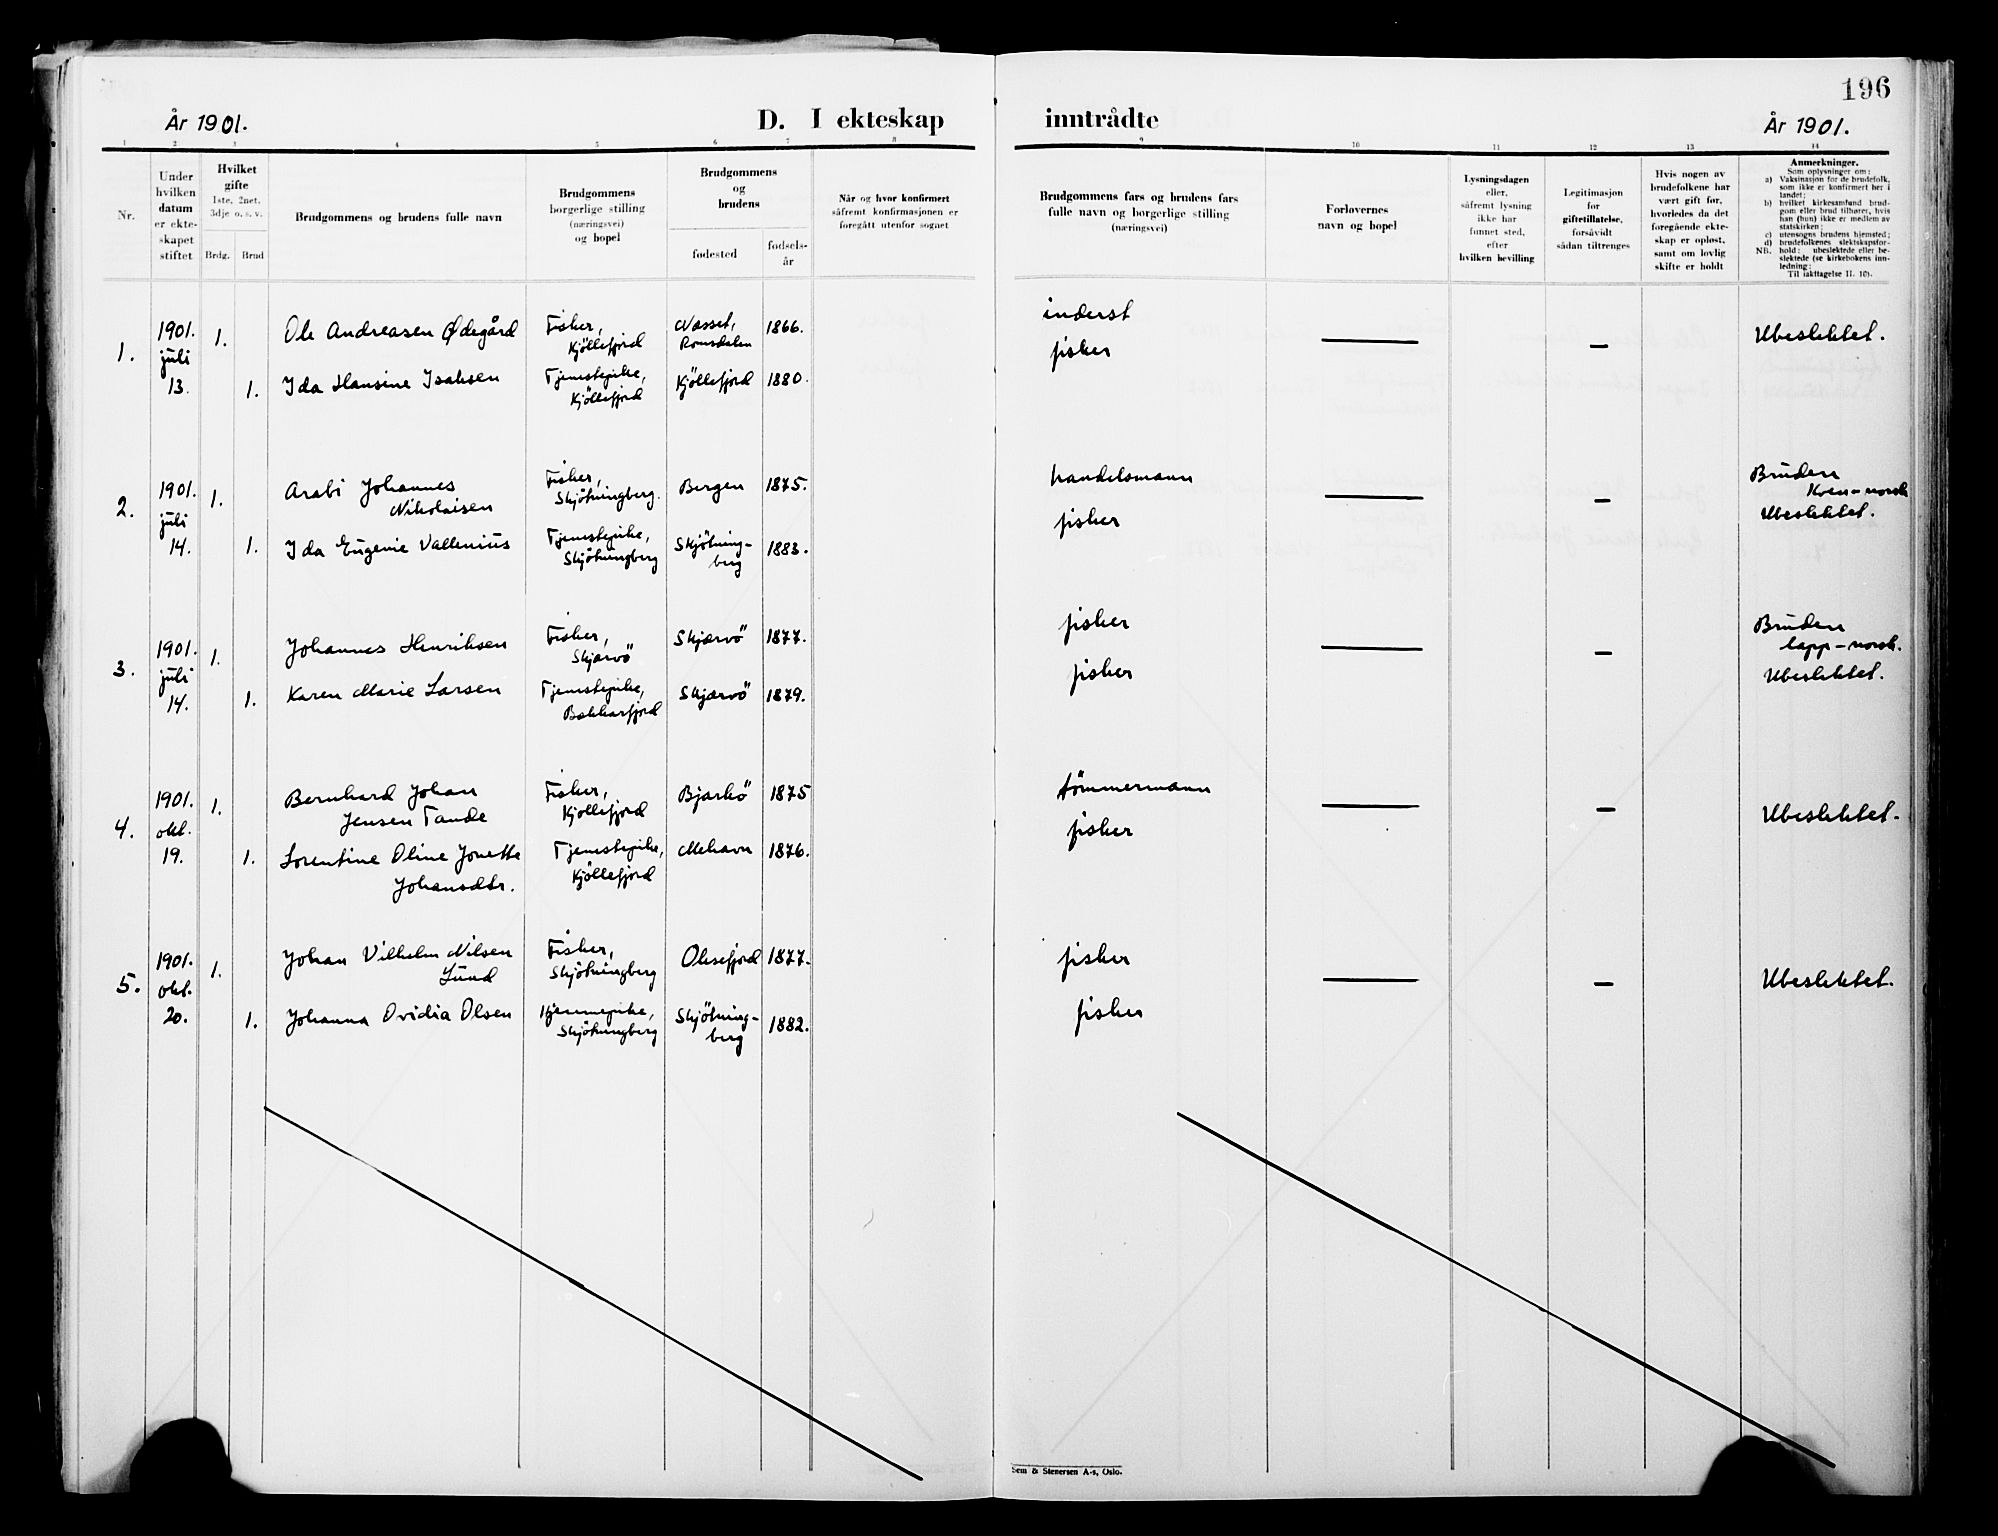 196
År 1901.
D. I ekteskap inntrådte
År 1901.
1 2 3 4 5 6 7 8 9 10 11 12 13 14
Nr.
Under
hvilken
datum
er ekte-
skapet
stiftet
Hvilket
gifte
1ste, 2net,
3dje o. s. v.
Brdg.
Brud
Brudgommens og brudens fulle navn
Brudgommens
borgerlige stilling
(næringsvei)
og bopel
Brudgommens
og
brudens
fødested
fødsels-
år
Når og hvor konfirmert
såfremt konfirmasjonen er
foregått utenfor sognet
Brudgommens fars og brudens fars
fulle navn og borgerlige stilling
(næringsvei)
Forlovernes
navn og bopel
Lysningsdagen
eller,
såfremt lysning
ikke har
funnet sted,
efter
hvilken bevilling
Legitimasjon
for
giftetillatelse,
forsåvidt
sådan tiltrenges
Hvis nogen av
brudefolkene har
vært gift før,
hvorledes da det
foregående ekte-
skap er opløst,
samt om lovlig
skifte er holdt
Anmerkninger.
Som oplysninger om:
a) Vaksinasjon for de brudefolk,
som ikke er konfirmert her i
landet;
b) hvilket kirkesamfund brud-
gom eller brud tilhører, hvis
han (hun) ikke er medlem av
statskirken;
c) utensogns brudens hjemsted;
d) brudefolkenes slektskapsfor-
hold: ubeslektede eller be-
slektede (se kirkebokens inn-
ledning;
NB.
Til iakttagelse II. 10).
1.
1901.
juli
13.
1.
Ole Andreasen Ødegård
Fisher,
Kjöllefjord
Nasset,
Romsdalen
1866.
inderst
—
—
Ubeslektet.
1.
Ida Hansine Isaksen
Tjenestepike,
Kjöllefjord
Kjöllefjord
1880.
fisker
2.
1901.
juli
14.
1.
Arabi Johannes
Nikolaisen
Fisker,
Skjötningberg.
Bergen
1875.
handelsmann
—
—
Bruden
kven-norsk
Ubeslektet.
1.
Ida Eugenie Vallenius
Tjenestepike,
Skjötningberg
Skjötning-
berg
1883.
fisker
3.
1901.
juli
14.
1.
Johannes Henriksen
Fisker,
Skjærvö
Skjærvö
1877.
fisker
—
—
Bruden
lapp-norsk.
Ubeslektet.
1.
Karen Marie Larsen
Tjenestepike,
Bekkarfjord
Skjærvö
1879.
fisker
4.
1901.
okt.
19.
1.
Bernhard Johan
Jensen Tande
Fisker,
Kjöllefjord
Bjarkö
1875
tömmermann
—
—
Ubeslektet.
1.
Lorentine Oline Jonette
Johansdtr.
Tjenestepike,
Kjöllefjord
Mehavn
1876.
fisker
5.
1901.
okt.
20.
1.
Johan Vilhelm Nilsen
Lund
Fisker,
Skjötningberg
Oksefjord
1877.
fisker
—
—
Ubeslektet.
1.
Johanna Ovidia Olsen
Skjötningberg
Skjötning-
berg
1882.
fisker
Sem & Stenersen A-s, Oslo.